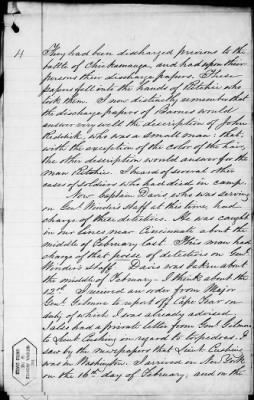 4
They had been discharged previous to the
battle of Chickamauga, and had upon their
persons their discharge papers. These
papers fell into the hands of Ritchie who
took them. I now distinctly remember that
the discharge papers of Barnes would
answer very well the description of John
Reddick, who was a small man: that,
with the exception of the color of the hair,
the other description would answer for the
man Ritchie. I heard of several other
cases of soldiers who had died in camp.
Now Captain Davis who was serving
on Genl Winder's staff at this time, had
charge of these detectives. He was caught
in our lines near Cincinnati about the
middle of February last. This man had
charge of that posse of detectives on Genl
Winder's staff. Davis was taken about
the middle of February. I think about the
12th. I received an order from Major
Genl Gilmore to report off Cape Fear on
duty of which I was already advised.
I also had a private letter from Genl Gilmore
to Lieut Cushing in regard to torpedoes. I
saw by the newspapers that Lieut Cushing
was in Washington. I arrived in New York
on the 16th day of February, and on the